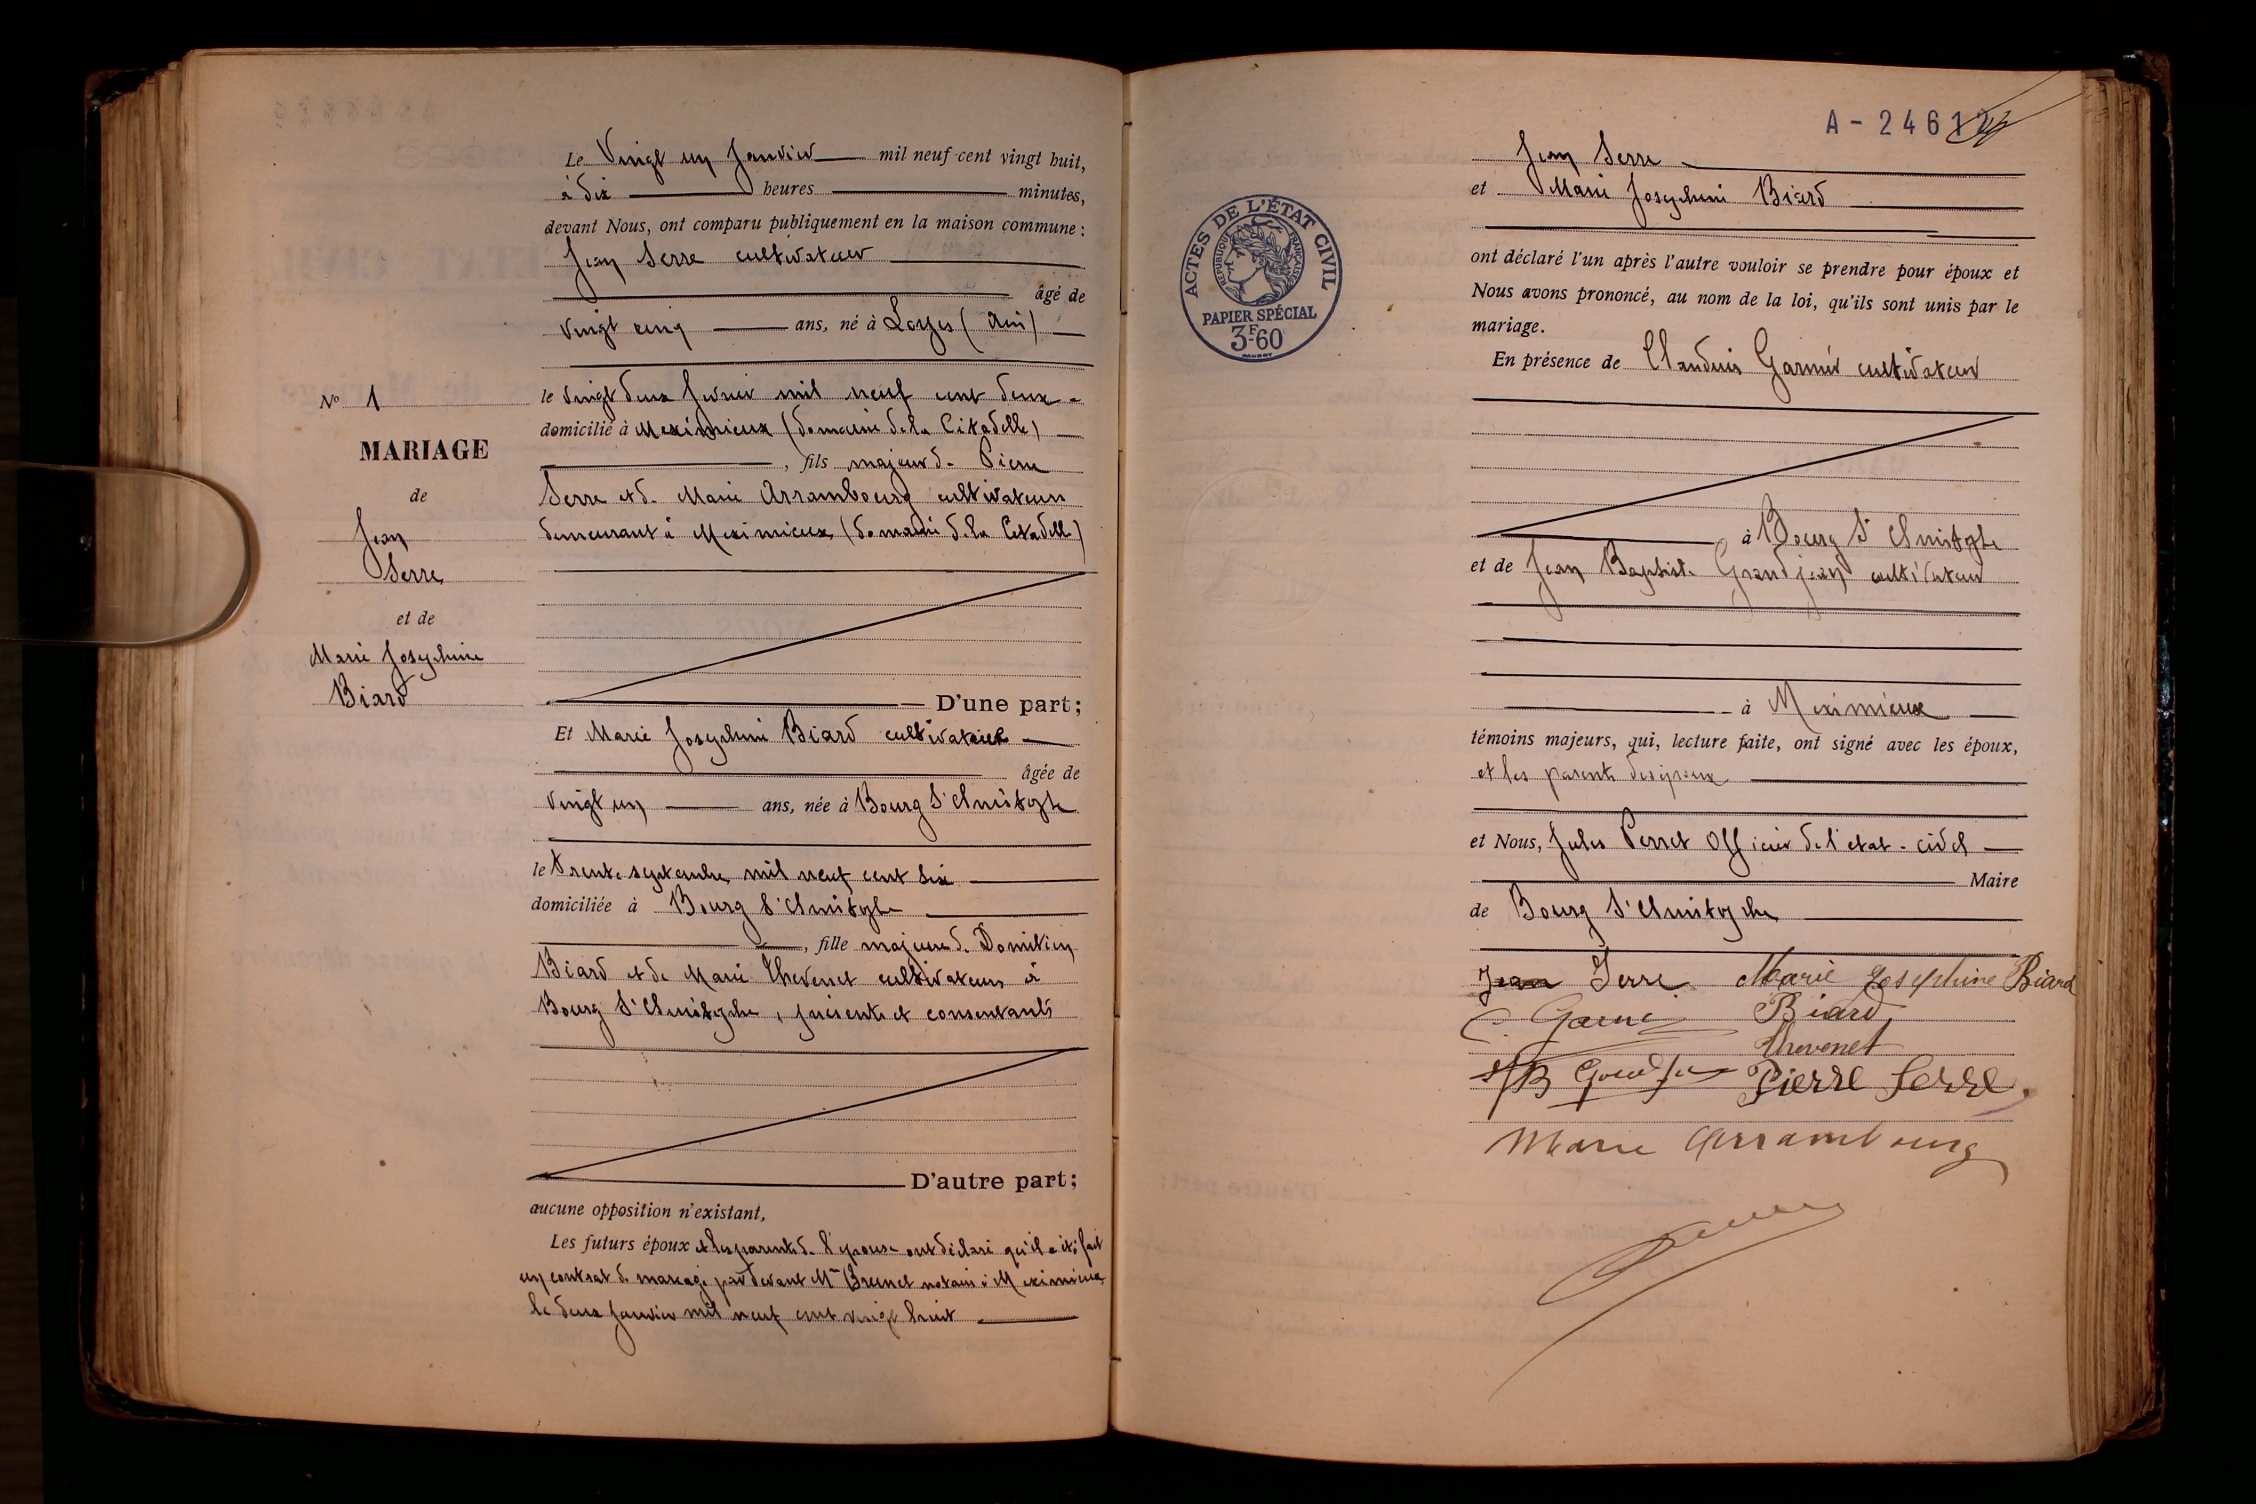 Le Vingt un Janvier mil neuf cent vingt huit,
à dix heures minutes,
devant Nous, ont comparu publiquement en la maison commune :
Jean Serre cultivateur
âgé de
vingt cinq ans, né à Loyes (Ain)
le vingt deux fevrier mil neuf cent deux
domicilié à Meximieux (domaine de la Citadelle)
, fils majeur de Pierre
Serre et de Marie Arrambourg cultivateurs
demeurant à Meximieux (domaine de la Citadelle)
D'une part ;
Nº 1
MARIAGE
de
Jean
Serre
et de
Marie Josephine
Biard
Et Marie Josephine Biard cultivatrice
âgée de
vingt un ans, née à Bourg St Christophe
le trente septembre mil neuf cent six
domiciliée à Bourg St Christophe
, fille majeure de Domitien
Biard et de Marie Thevenet cultivateurs à
Bourg St Christophe, présents et consentants
D'autre part ;
aucune opposition n'existant,
Les futurs époux et les parents de l'épouse ont déclaré qu'il a été fait
un contrat de mariage par devant Me Brunet notaire à Meximieux
le deux Janvier mil neuf cent vingt huit
A - 2461
Jean Serre
et Marie Josephine Biard
ACTES DE L'ÉTAT CIVIL
RÉPUBLIQUE FRANÇAISE
PAPIER SPÉCIAL
3F60
ont déclaré l'un après l'autre vouloir se prendre pour époux et
Nous avons prononcé, au nom de la loi, qu'ils sont unis par le
mariage.
En présence de Claudius Garnier cultivateur
à Bourg St Christophe
et de Jean Baptiste Grandjean cultivateur
à Meximieux
témoins majeurs, qui, lecture faite, ont signé avec les époux,
et les parents des époux
et Nous, Jules Perret Officier de l'état-civil
Maire
de Bourg St Christophe
Jean Serre Marie Josephine Biard
C. Garnier Biard
Thevenet
JB Pierre Serre
Marie Arrambourg